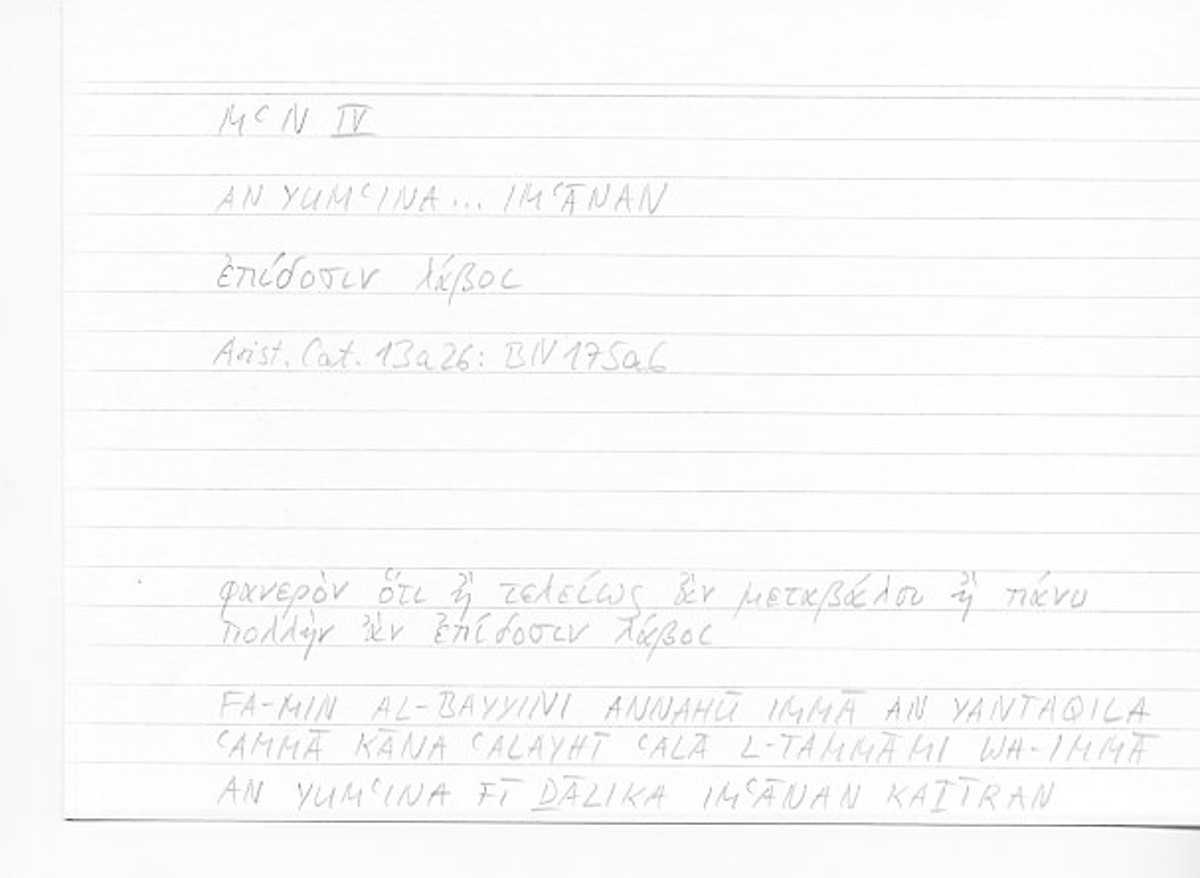 MʿN IV
AN YUMʿINA... IMʿĀNAN
ἐπίδοσιν λάβοι
Arist. Cat. 13a26: BN 175a6
φανερὸν ὅτι ἢ τελείως ἂν μεταβάλοι ἢ πάνυ
πολλὴν ἂν ἐπίδοσιν λάβοι
FA-MIN AL-BAYYINI ANNAHŪ IMMĀ AN YANTAQILA
ʿAMMĀ KĀNA ʿALAYHĪ ʿALĀ L-TAMMĀMI WA-IMMĀ
AN YUMʿINA FĪ ḎĀLIKA IMʿĀNAN KAṮĪRAN